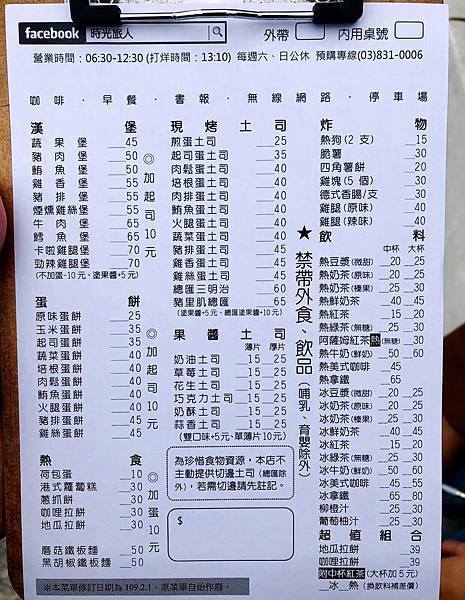 facebook 時光旅人 外帶 內用桌號
營業時間：06:30-12:30 (打烊時間：13:10) 每週六、日公休 預購專線(03)831-0006
咖啡．早餐．書報．無線網路．停車場
漢堡
蔬果堡 45
豬肉堡 50
鮪魚堡 50
雞香堡 55
豬排堡 55
煙燻雞絲堡 55
牛肉堡 65
鱈魚堡 65
卡啦雞腿堡 70
勁辣雞腿堡 70
(不加蛋-10元、塗果醬+5元)
◎加起司10元
蛋餅
原味蛋餅 25
玉米蛋餅 35
起司蛋餅 35
蔬菜蛋餅 40
培根蛋餅 40
肉鬆蛋餅 40
鮪魚蛋餅 40
火腿蛋餅 40
豬排蛋餅 45
雞絲蛋餅 45
◎加起司10元
熱食
荷包蛋 10
港式蘿蔔糕 30
蔥抓餅 30
咖哩拉餅 30
地瓜拉餅 30
◎加蛋10元
蘑菇鐵板麵 50
黑胡椒鐵板麵 50
※本菜單修訂日期為109.2.1，原菜單自始作廢。
現烤土司
煎蛋土司 25
起司蛋土司 35
肉鬆蛋土司 40
培根蛋土司 40
肉排蛋土司 40
鮪魚蛋土司 40
火腿蛋土司 40
蔬菜蛋土司 40
豬排蛋土司 45
雞香蛋土司 45
雞絲蛋土司 45
總匯三明治 60
豬里肌總匯 65
(塗果醬+5元、總匯塗果醬+10元)
果醬土司
薄片 厚片
奶油土司 15 25
草莓土司 15 25
花生土司 15 25
巧克力土司 15 25
奶酥土司 15 25
蒜香土司 15 25
(雙口味+5元、單薄片10元)
為珍惜食物資源，本店不
主動提供切邊土司(總匯除
外)，若需切邊請先註記。
$
★禁帶外食、飲品(哺乳、育嬰除外)
炸物
熱狗(2支) 15
脆薯 30
四角薯餅 20
雞塊(5個) 30
德式香腸/支 30
雞腿(原味) 40
雞腿(辣味) 40
飲料
中杯 大杯
熱豆漿(微甜) 20 25
熱奶茶(原味) 20 25
熱奶茶(榛果) 25 30
熱鮮奶茶 40 45
熱紅茶 15 20
熱綠茶(無糖) 25 30
阿薩姆紅茶熱(無糖) 30
熱牛奶(鮮奶) 50 60
熱美式咖啡 45
熱拿鐵 65
冰豆漿(微甜) 20 25
冰奶茶(原味) 20 25
冰奶茶(榛果) 25 30
冰鮮奶茶 40 45
冰紅茶 15 20
冰綠茶(無糖) 25 30
冰牛奶(鮮奶) 50 60
冰美式咖啡 45 55
冰拿鐵 65 80
柳橙汁 25 30
葡萄柚汁 25 30
超值組合
地瓜拉餅 39
咖哩拉餅 39
附中杯紅茶(大杯加5元)
冰 熱(換飲料補差價)